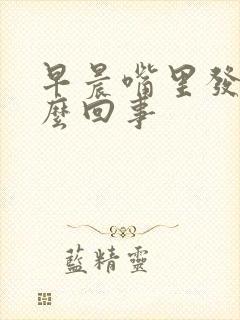 早晨嘴里發
麼回事
藍精靈